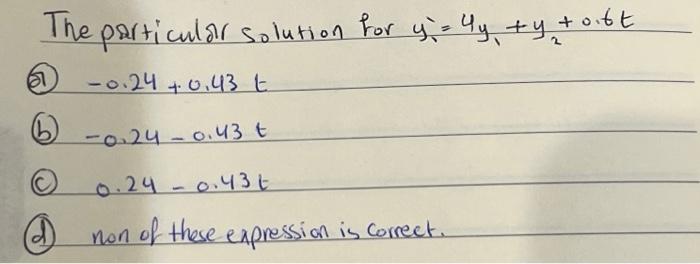 The particular solution for y₁' = 4y₁ + y₂ + 0.6t
ⓐ -0.24 + 0.43 t
ⓑ -0.24 - 0.43 t
ⓒ 0.24 - 0.43 t
ⓓ non of these expression is correct.